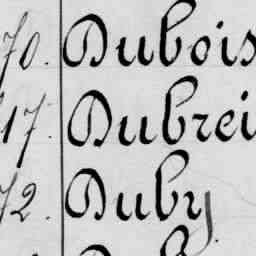 70. Dubois
17. Dubrei
72. Duby